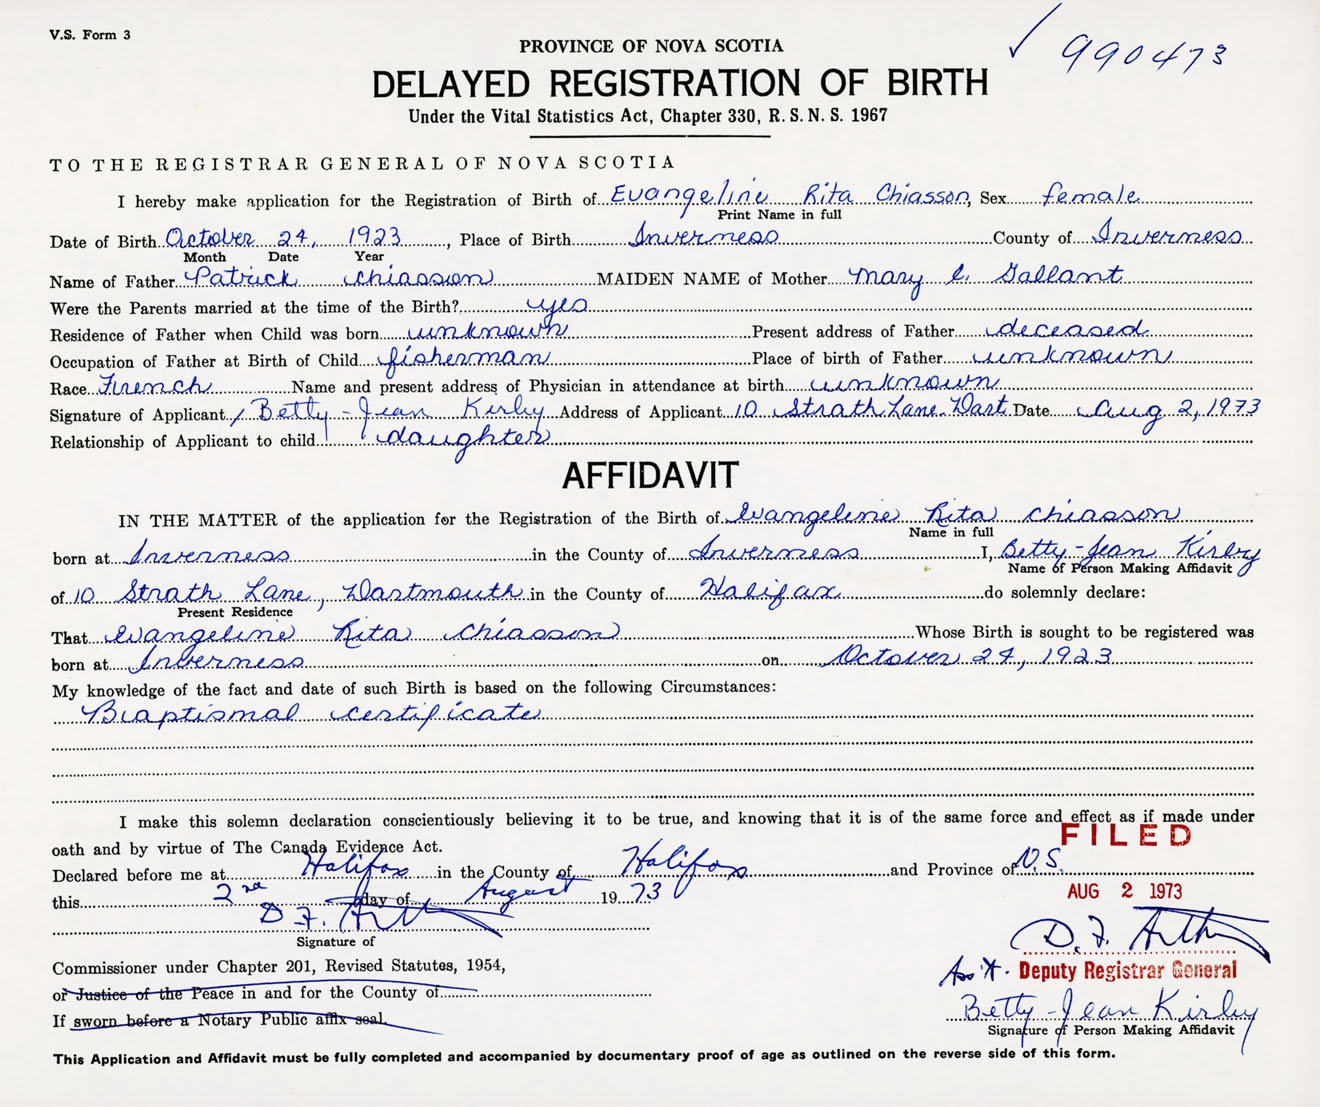 V.S. Form 3
990473
PROVINCE OF NOVA SCOTIA
DELAYED REGISTRATION OF BIRTH
Under the Vital Statistics Act, Chapter 330, R. S. N. S. 1967
TO THE REGISTRAR GENERAL OF NOVA SCOTIA
I hereby make application for the Registration of Birth of Evangeline Rita Chiasson, Sex female
Print Name in full
Date of Birth October 24, 1923, Place of Birth Inverness County of Inverness
Month Date Year
Name of Father Patrick Chiasson MAIDEN NAME of Mother Mary C. Gallant
Were the Parents married at the time of the Birth? yes
Residence of Father when Child was born unknown Present address of Father deceased
Occupation of Father at Birth of Child fisherman Place of birth of Father unknown
Race French Name and present address of Physician in attendance at birth unknown
Signature of Applicant Betty-Jean Kirby Address of Applicant 10 Strath Lane Dart. Date Aug 2, 1973
Relationship of Applicant to child daughter
AFFIDAVIT
IN THE MATTER of the application for the Registration of the Birth of Evangeline Rita Chiasson
Name in full
born at Inverness in the County of Inverness I, Betty-Jean Kirby
Name of Person Making Affidavit
of 10 Strath Lane, Dartmouth in the County of Halifax do solemnly declare:
Present Residence
That Evangeline Rita Chiasson Whose Birth is sought to be registered was
born at Inverness on October 24, 1923
My knowledge of the fact and date of such Birth is based on the following Circumstances:
Baptismal certificate
I make this solemn declaration conscientiously believing it to be true, and knowing that it is of the same force and effect as if made under
oath and by virtue of The Canada Evidence Act.
FILED
Declared before me at Halifax in the County of Halifax and Province of N.S.
this 2nd day of August 1973
AUG 2 1973
D. F. Arth
Signature of
D. F. Arth
Commissioner under Chapter 201, Revised Statutes, 1954,
Ass't. Deputy Registrar General
or Justice of the Peace in and for the County of
Betty-Jean Kirby
If sworn before a Notary Public affix seal.
Signature of Person Making Affidavit
This Application and Affidavit must be fully completed and accompanied by documentary proof of age as outlined on the reverse side of this form.